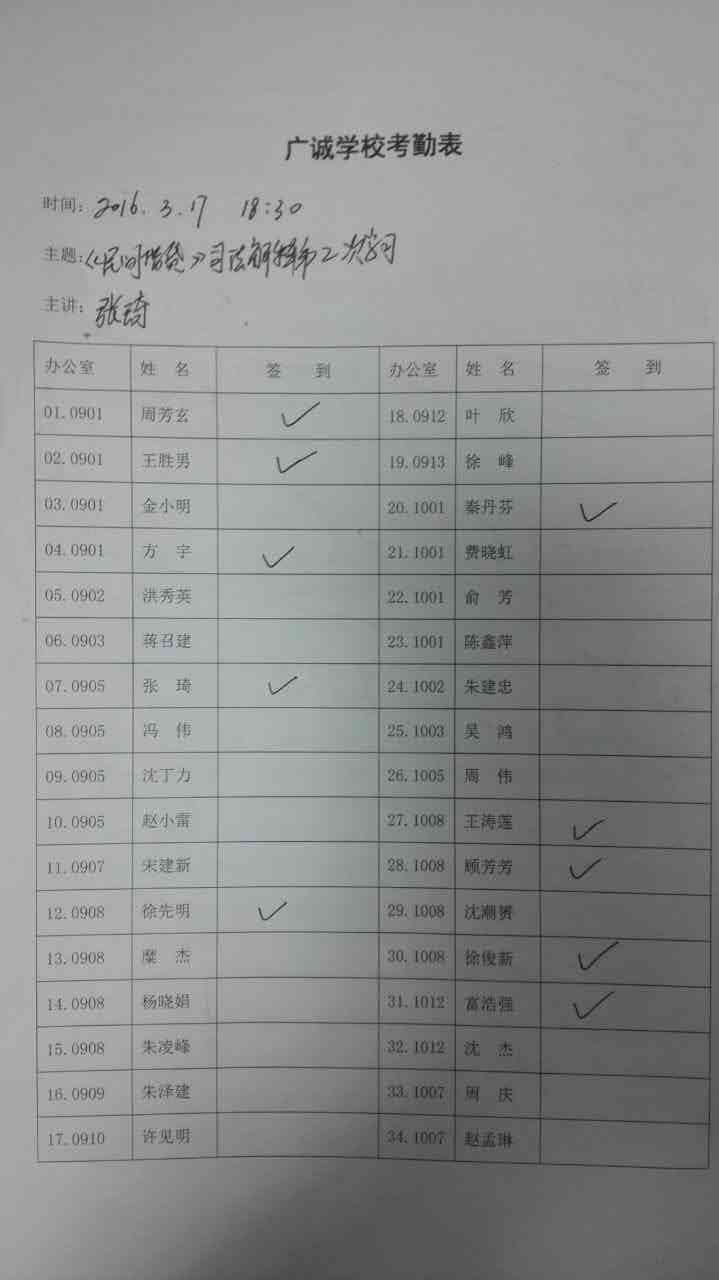 广诚学校考勤表
时间: 2016.3.17 18:30
主题:《民间借贷》司法解释第二次学习
主讲: 张琦
办公室 姓 名 签 到 办公室 姓 名 签 到
01.0901 周芳玄 ✓ 18.0912 叶 欣
02.0901 王胜男 ✓ 19.0913 徐 峰
03.0901 金小明 20.1001 秦丹芬 ✓
04.0901 方 宇 ✓ 21.1001 费晓虹
05.0902 洪秀英 22.1001 俞 芳
06.0903 蒋召建 23.1001 陈鑫萍
07.0905 张 琦 ✓ 24.1002 朱建忠
08.0905 冯 伟 25.1003 吴 鸿
09.0905 沈丁力 26.1005 周 伟
10.0905 赵小雷 27.1008 王涛莲 ✓
11.0907 宋建新 28.1008 顾芳芳 ✓
12.0908 徐先明 ✓ 29.1008 沈潮赟
13.0908 糜 杰 30.1008 徐俊新 ✓
14.0908 杨晓娟 31.1012 富浩强 ✓
15.0908 朱凌峰 32.1012 沈 杰
16.0909 朱泽建 33.1007 周 庆
17.0910 许见明 34.1007 赵孟琳